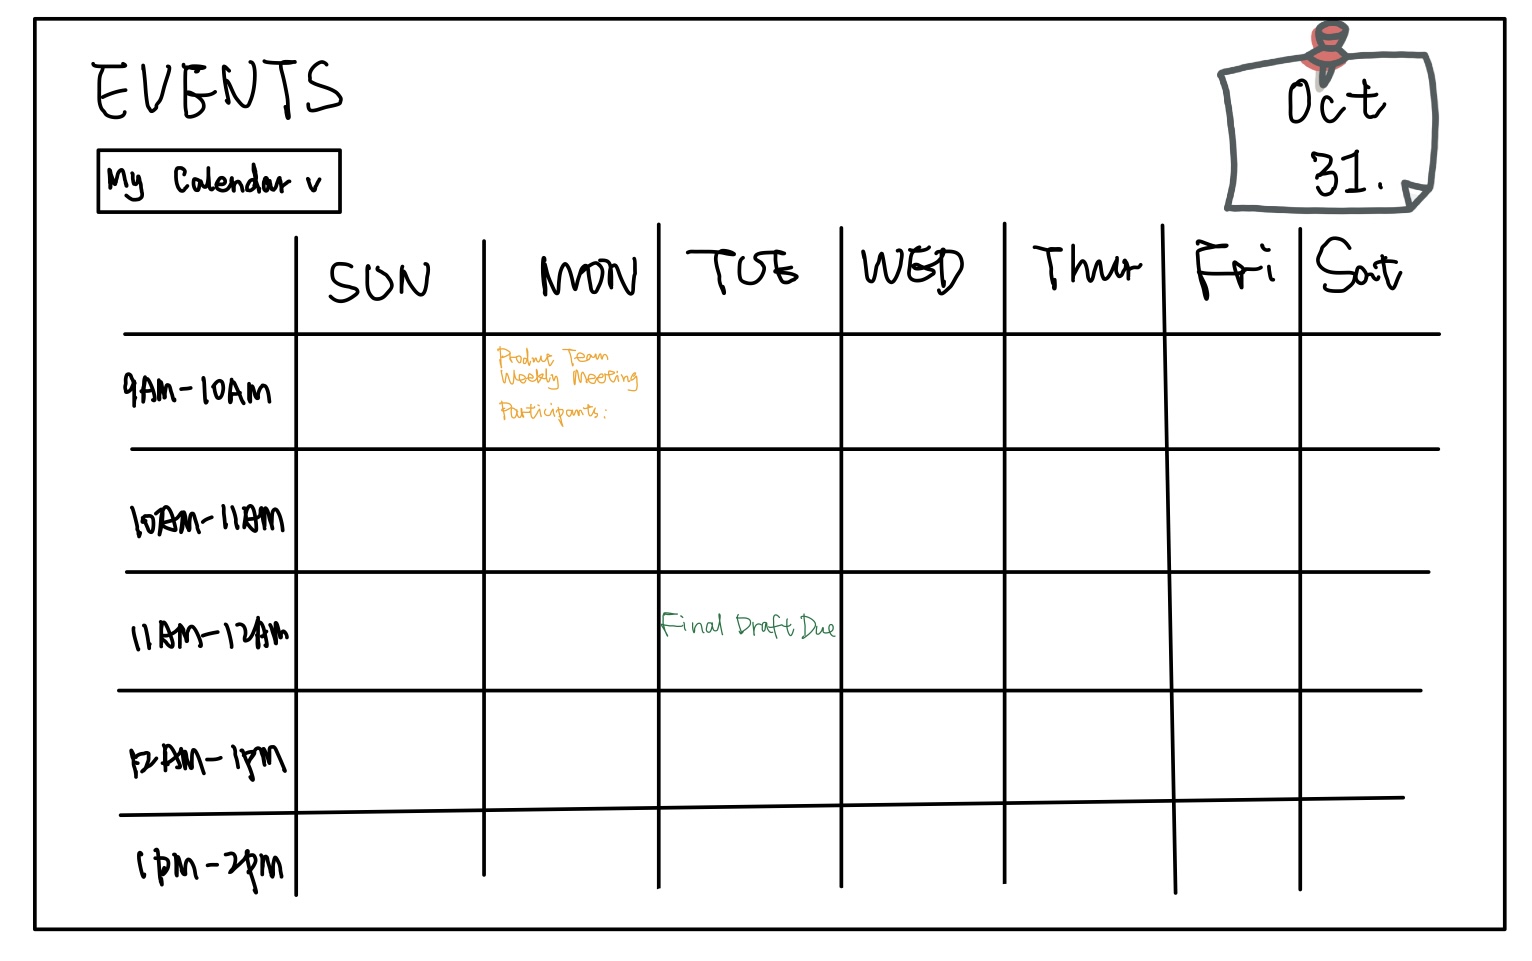 EVENTS
Oct
31.
My Calendar v
SUN MON TUE WED Thur Fri Sat
9AM-10AM
Product Team
Weekly Meeting
Participants:
10AM-11AM
11AM-12AM
Final Draft Due
12AM-1pm
1pm-2pm